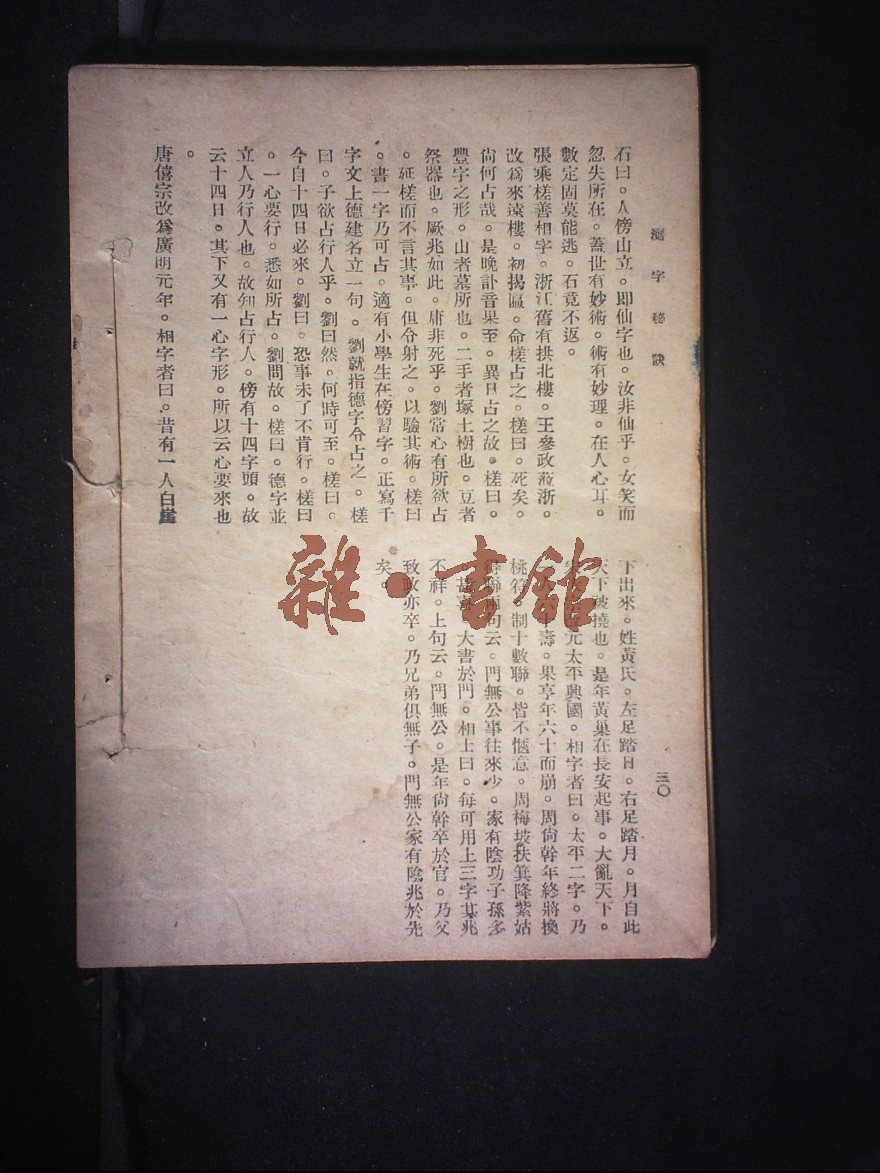 測字秘訣
石曰。人傍山立。即仙字也。汝非仙乎。女笑而
忽失所在。蓋世有妙術。術有妙理。在人心耳。
數定固莫能逃。石竟不返。
張乘槎善相字。浙江舊有拱北樓。王參政蒞浙。
改爲來遠樓。初揭匾。命槎占之。槎曰。死矣。
尙何占哉。是晚訃音果至。異日占之故。槎曰。
豐字之形。山者墓所也。二手者塚土樹也。豆者
祭器也。厥兆如此。庸非死乎。劉常心有所欲占
。延槎而不言其事。但令射之。以驗其術。槎曰
。書一字乃可占。適有小學生在傍習字。正寫千
字文上德建名立一句。劉就指德字令占之。槎
曰。子欲占行人乎。劉曰然。何時可至。槎曰。
今自十四日必來。劉曰。恐事未了不肯行。槎曰
。一心要行。悉如所占。劉問故。槎曰。德字並
立人乃行人也。故知占行人。傍有十四字頭。故
云十四日。其下又有一心字形。所以云心要來也
。
唐僖宗改爲廣明元年。相字者曰。昔有一人自崖
下出來。姓黃氏。左足踏日。右足踏月。月自此
天下被撓也。是年黃巢在長安起事。大亂天下。
元太平興國。相字者曰。太平二字。乃
壽。果亨年六十而崩。周尙幹年終將換
桃符。制十數聯。皆不愜意。周梅坡扶箕降紫姑
聯兩句云。門無公事往來少。家有陰功子孫多
大書於門。相士曰。每可用上三字其兆
不祥。上句云。門無公。是年尙幹卒於官。乃父
致政亦卒。乃兄弟俱無子。門無公家有陰兆於先
矣。
三〇
雜·書館